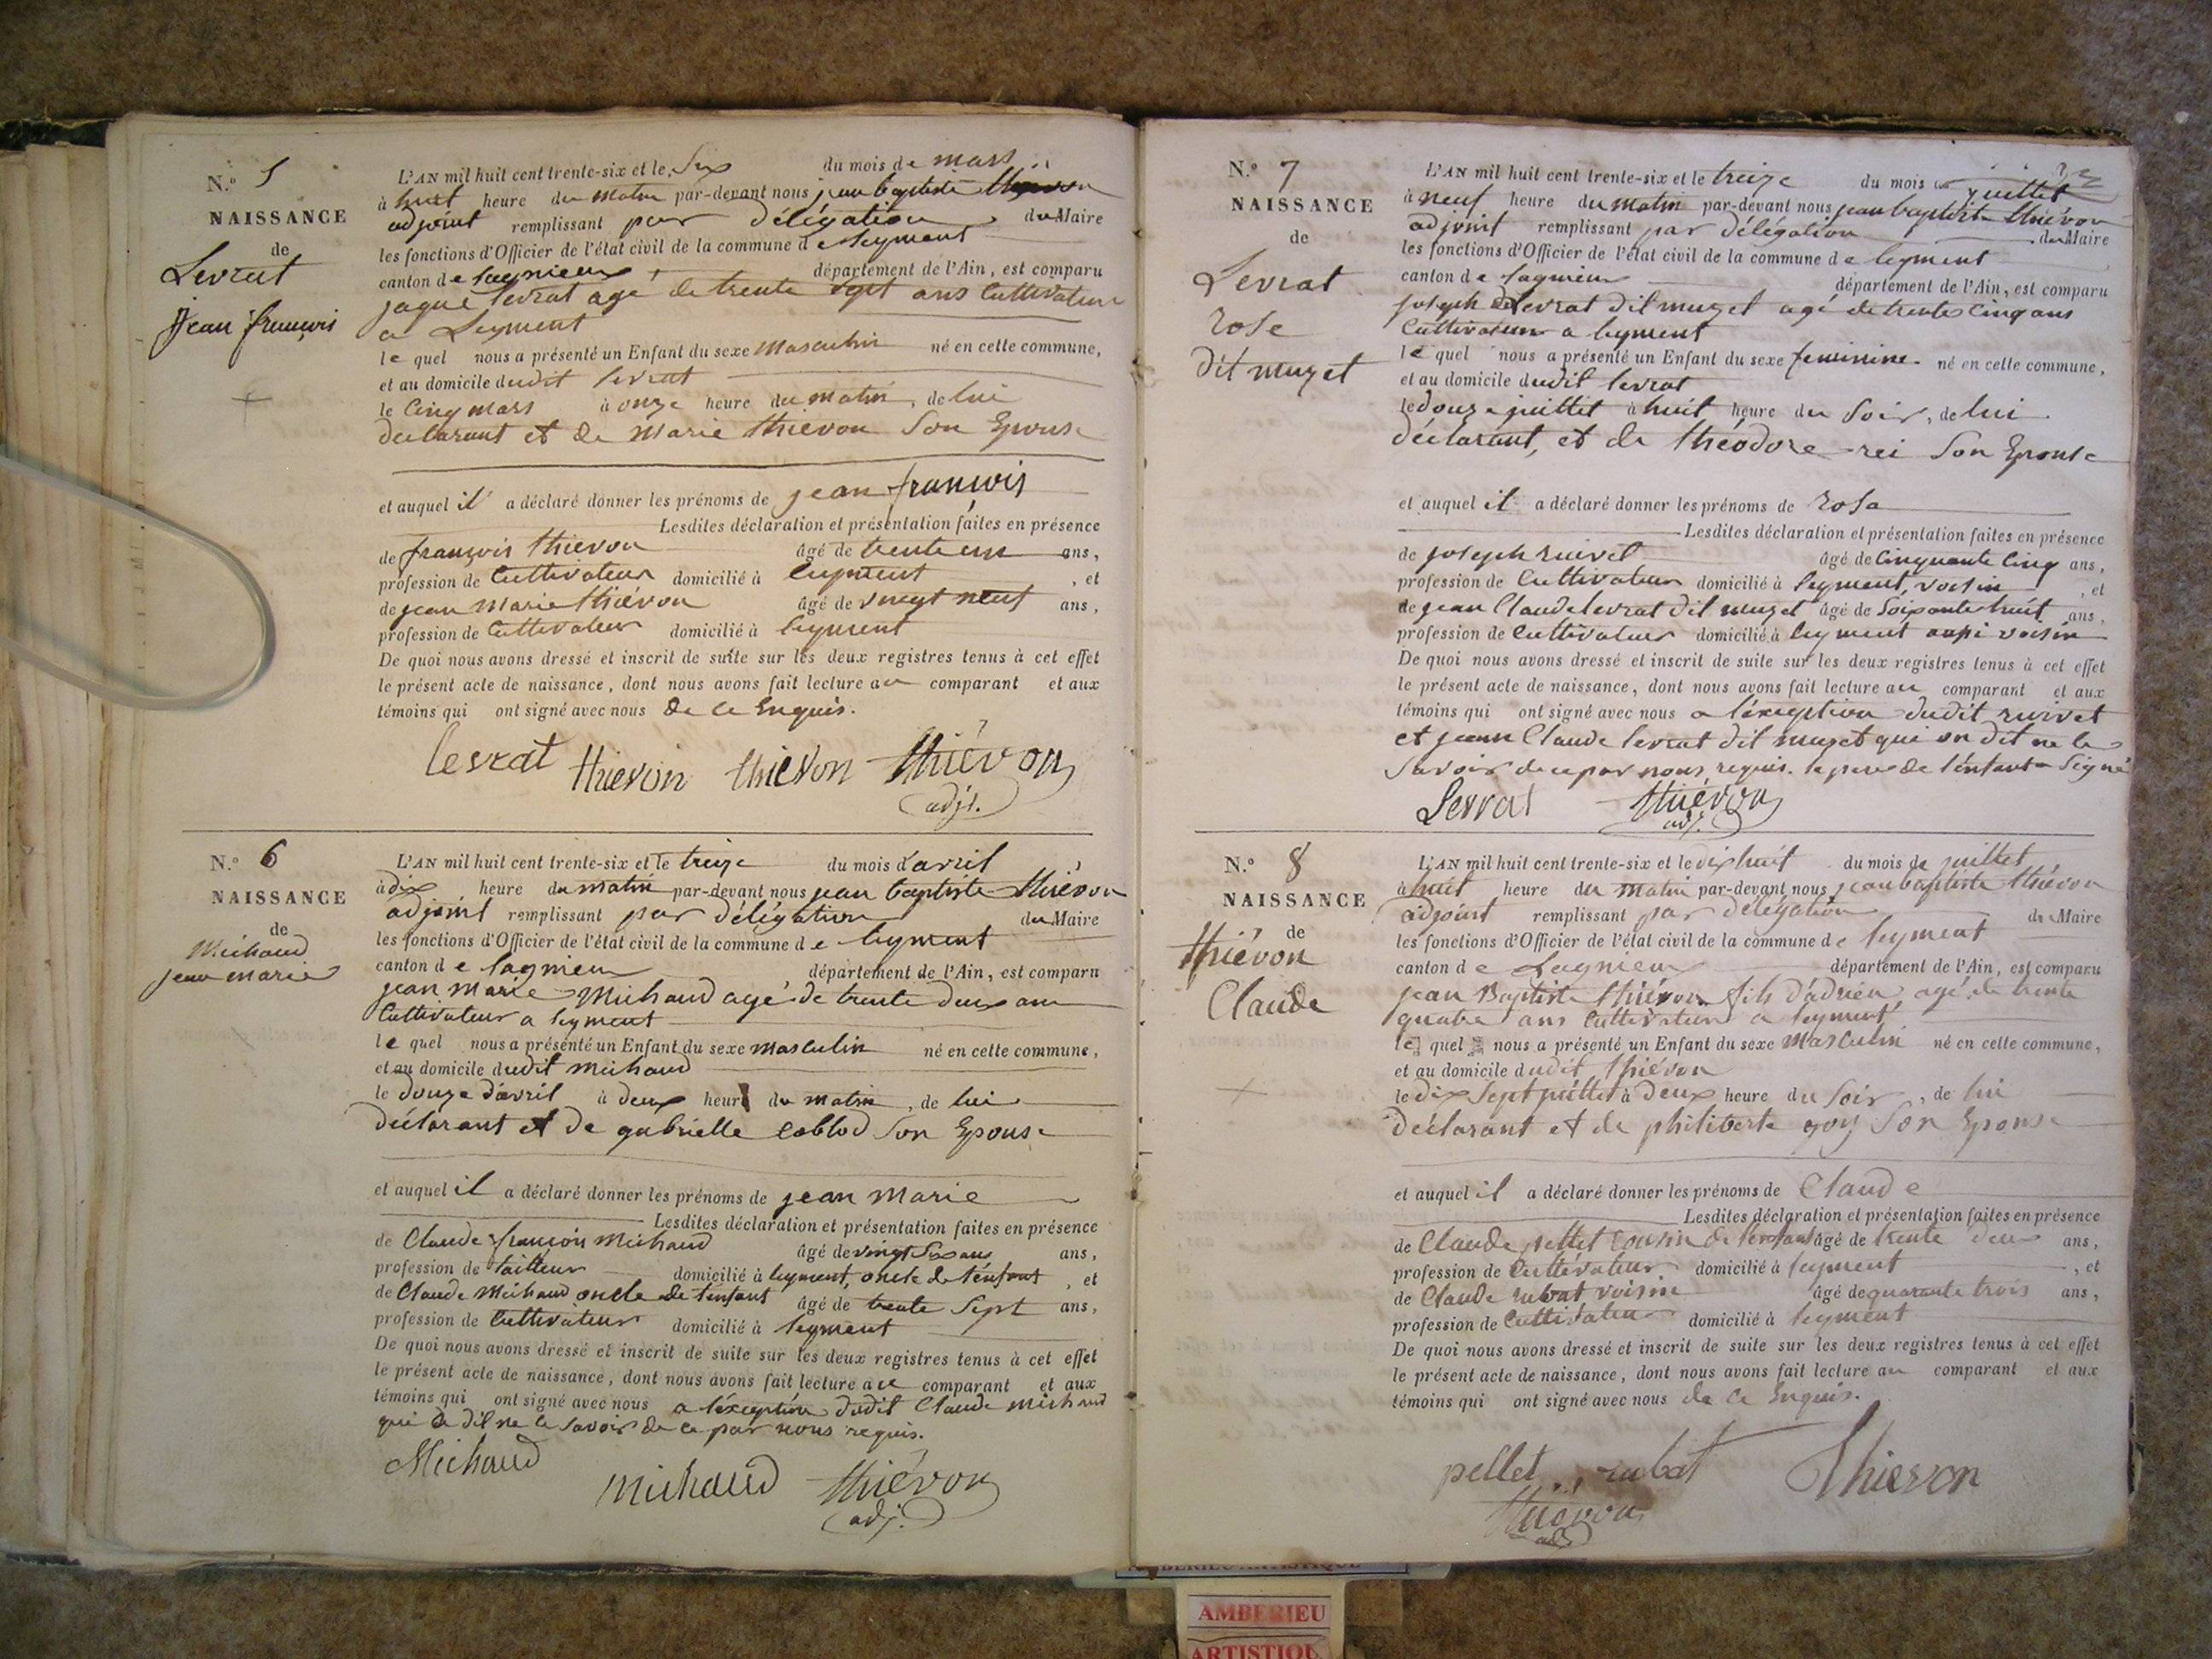 N.º 5
NAISSANCE
de
Levrat
jean françois
L'AN mil huit cent trente-six et le Six du mois de mars
à huit heure du matin par-devant nous jean baptiste thiévon
adjoint remplissant par délégation du Maire
les fonctions d'Officier de l'état civil de la commune de leyment
canton de lagnieux département de l'Ain, est comparu
jaque levrat agé de trente sept ans Cultivateur
a Leyment
le quel nous a présenté un Enfant du sexe Masculin né en cette commune,
et au domicile dudit levrat
le Cinq mars à onze heure du matin, de lui
déclarant et de Marie thiévon Son Epouse
et auquel il a déclaré donner les prénoms de jean françois
Lesdites déclaration et présentation faites en présence
de françois thievon âgé de trente un ans,
profession de Cultivateur domicilié à leyment, et
de jean Marie thiévon âgé de vingt neuf ans,
profession de Cultivateur domicilié à leyment
De quoi nous avons dressé et inscrit de suite sur les deux registres tenus à cet effet
le présent acte de naissance, dont nous avons fait lecture au comparant et aux
témoins qui ont signé avec nous de ce Enquis.
levrat thievon thievon thiévon
adjt.
N.º 6
NAISSANCE
de
Michaud
jean marie
L'AN mil huit cent trente-six et le treize du mois d'avril
à dix heure du matin par-devant nous jean baptiste thiévon
adjoint remplissant par délégation du Maire
les fonctions d'Officier de l'état civil de la commune de leyment
canton de lagnieu département de l'Ain, est comparu
jean Marie Michaud agé de trente deux ans
Cultivateur a leyment
le quel nous a présenté un Enfant du sexe masculin né en cette commune,
et au domicile dudit michaud
le douze d'avril à deux heure du matin, de lui
déclarant et de gabrielle Son Epouse
et auquel il a déclaré donner les prénoms de jean marie
Lesdites déclaration et présentation faites en présence
de Claude françois Michaud âgé de vingt Six ans ans,
profession de tailleur domicilié à leyment, oncle de l'énfant, et
de Claude Michaud oncle de l'enfant âgé de trente Sept ans,
profession de Cultivateur domicilié à leyment
De quoi nous avons dressé et inscrit de suite sur les deux registres tenus à cet effet
le présent acte de naissance, dont nous avons fait lecture au comparant et aux
témoins qui ont signé avec nous a léxception dudit Claude michaud
qui a dit ne le Savoir de ce par nous requis.
Michaud michaud thiévon
adj.
N.º 7
NAISSANCE
de
Levrat
rose
dit muzet
L'AN mil huit cent trente-six et le treize du mois juillet
à neuf heure du matin par-devant nous jean baptiste thiévon
adjoint remplissant par délégation du Maire
les fonctions d'Officier de l'état civil de la commune de leyment
canton de lagnieu département de l'Ain, est comparu
joseph levrat dit muzet agé de trente Cinq ans
Cultivateur a leyment
le quel nous a présenté un Enfant du sexe feminine né en cette commune,
et au domicile dudit levrat
le douze juillet à huit heure du Soir, de lui
déclarant, et de théodore rei Son Epouse
et auquel il a déclaré donner les prénoms de rose
Lesdites déclaration et présentation faites en présence
de joseph ruivet âgé de Cinquante Cinq ans,
profession de Cultivateur domicilié à leyment, voisin, et
de jean Claude levrat dit muzet âgé de Soixante huit ans,
profession de Cultivateur domicilié à leyment aussi voisin
De quoi nous avons dressé et inscrit de suite sur les deux registres tenus à cet effet
le présent acte de naissance, dont nous avons fait lecture au comparant et aux
témoins qui ont signé avec nous a léxception dudit ruivet
et jean Claude levrat dit muzet qui on dit ne le
Savoir de ce par nous requis. le pere de l'énfant a Signé
Levrat thiévon
adj.
N.º 8
NAISSANCE
de
thiévon
Claude
L'AN mil huit cent trente-six et le dix huit du mois de juillet
à huit heure du matin par-devant nous jean baptiste thiévon
adjoint remplissant par délégation du Maire
les fonctions d'Officier de l'état civil de la commune de leyment
canton de Lagnieu département de l'Ain, est comparu
jean Baptiste thiévon fils d'adrien, agé de trente
quatre ans Cultivateur a leyment
le quel nous a présenté un Enfant du sexe Masculin né en cette commune,
et au domicile dudit thiévon
le dix Sept juillet à deux heure du Soir, de lui
déclarant et de philiberte goy Son Epouse
et auquel il a déclaré donner les prénoms de Claude
Lesdites déclaration et présentation faites en présence
de Claude pellet cousin de l'enfant âgé de trente deux ans,
profession de Cultivateur domicilié à leyment, et
de Claude rubat voisin âgé de quarante trois ans,
profession de Cultivateur domicilié à leyment
De quoi nous avons dressé et inscrit de suite sur les deux registres tenus à cet effet
le présent acte de naissance, dont nous avons fait lecture au comparant et aux
témoins qui ont signé avec nous de ce Enquis.
pellet rubat Thievon
thiévon
adj
AMBERIEU ARTISTIQUE
AMBERIEU
ARTISTIQU